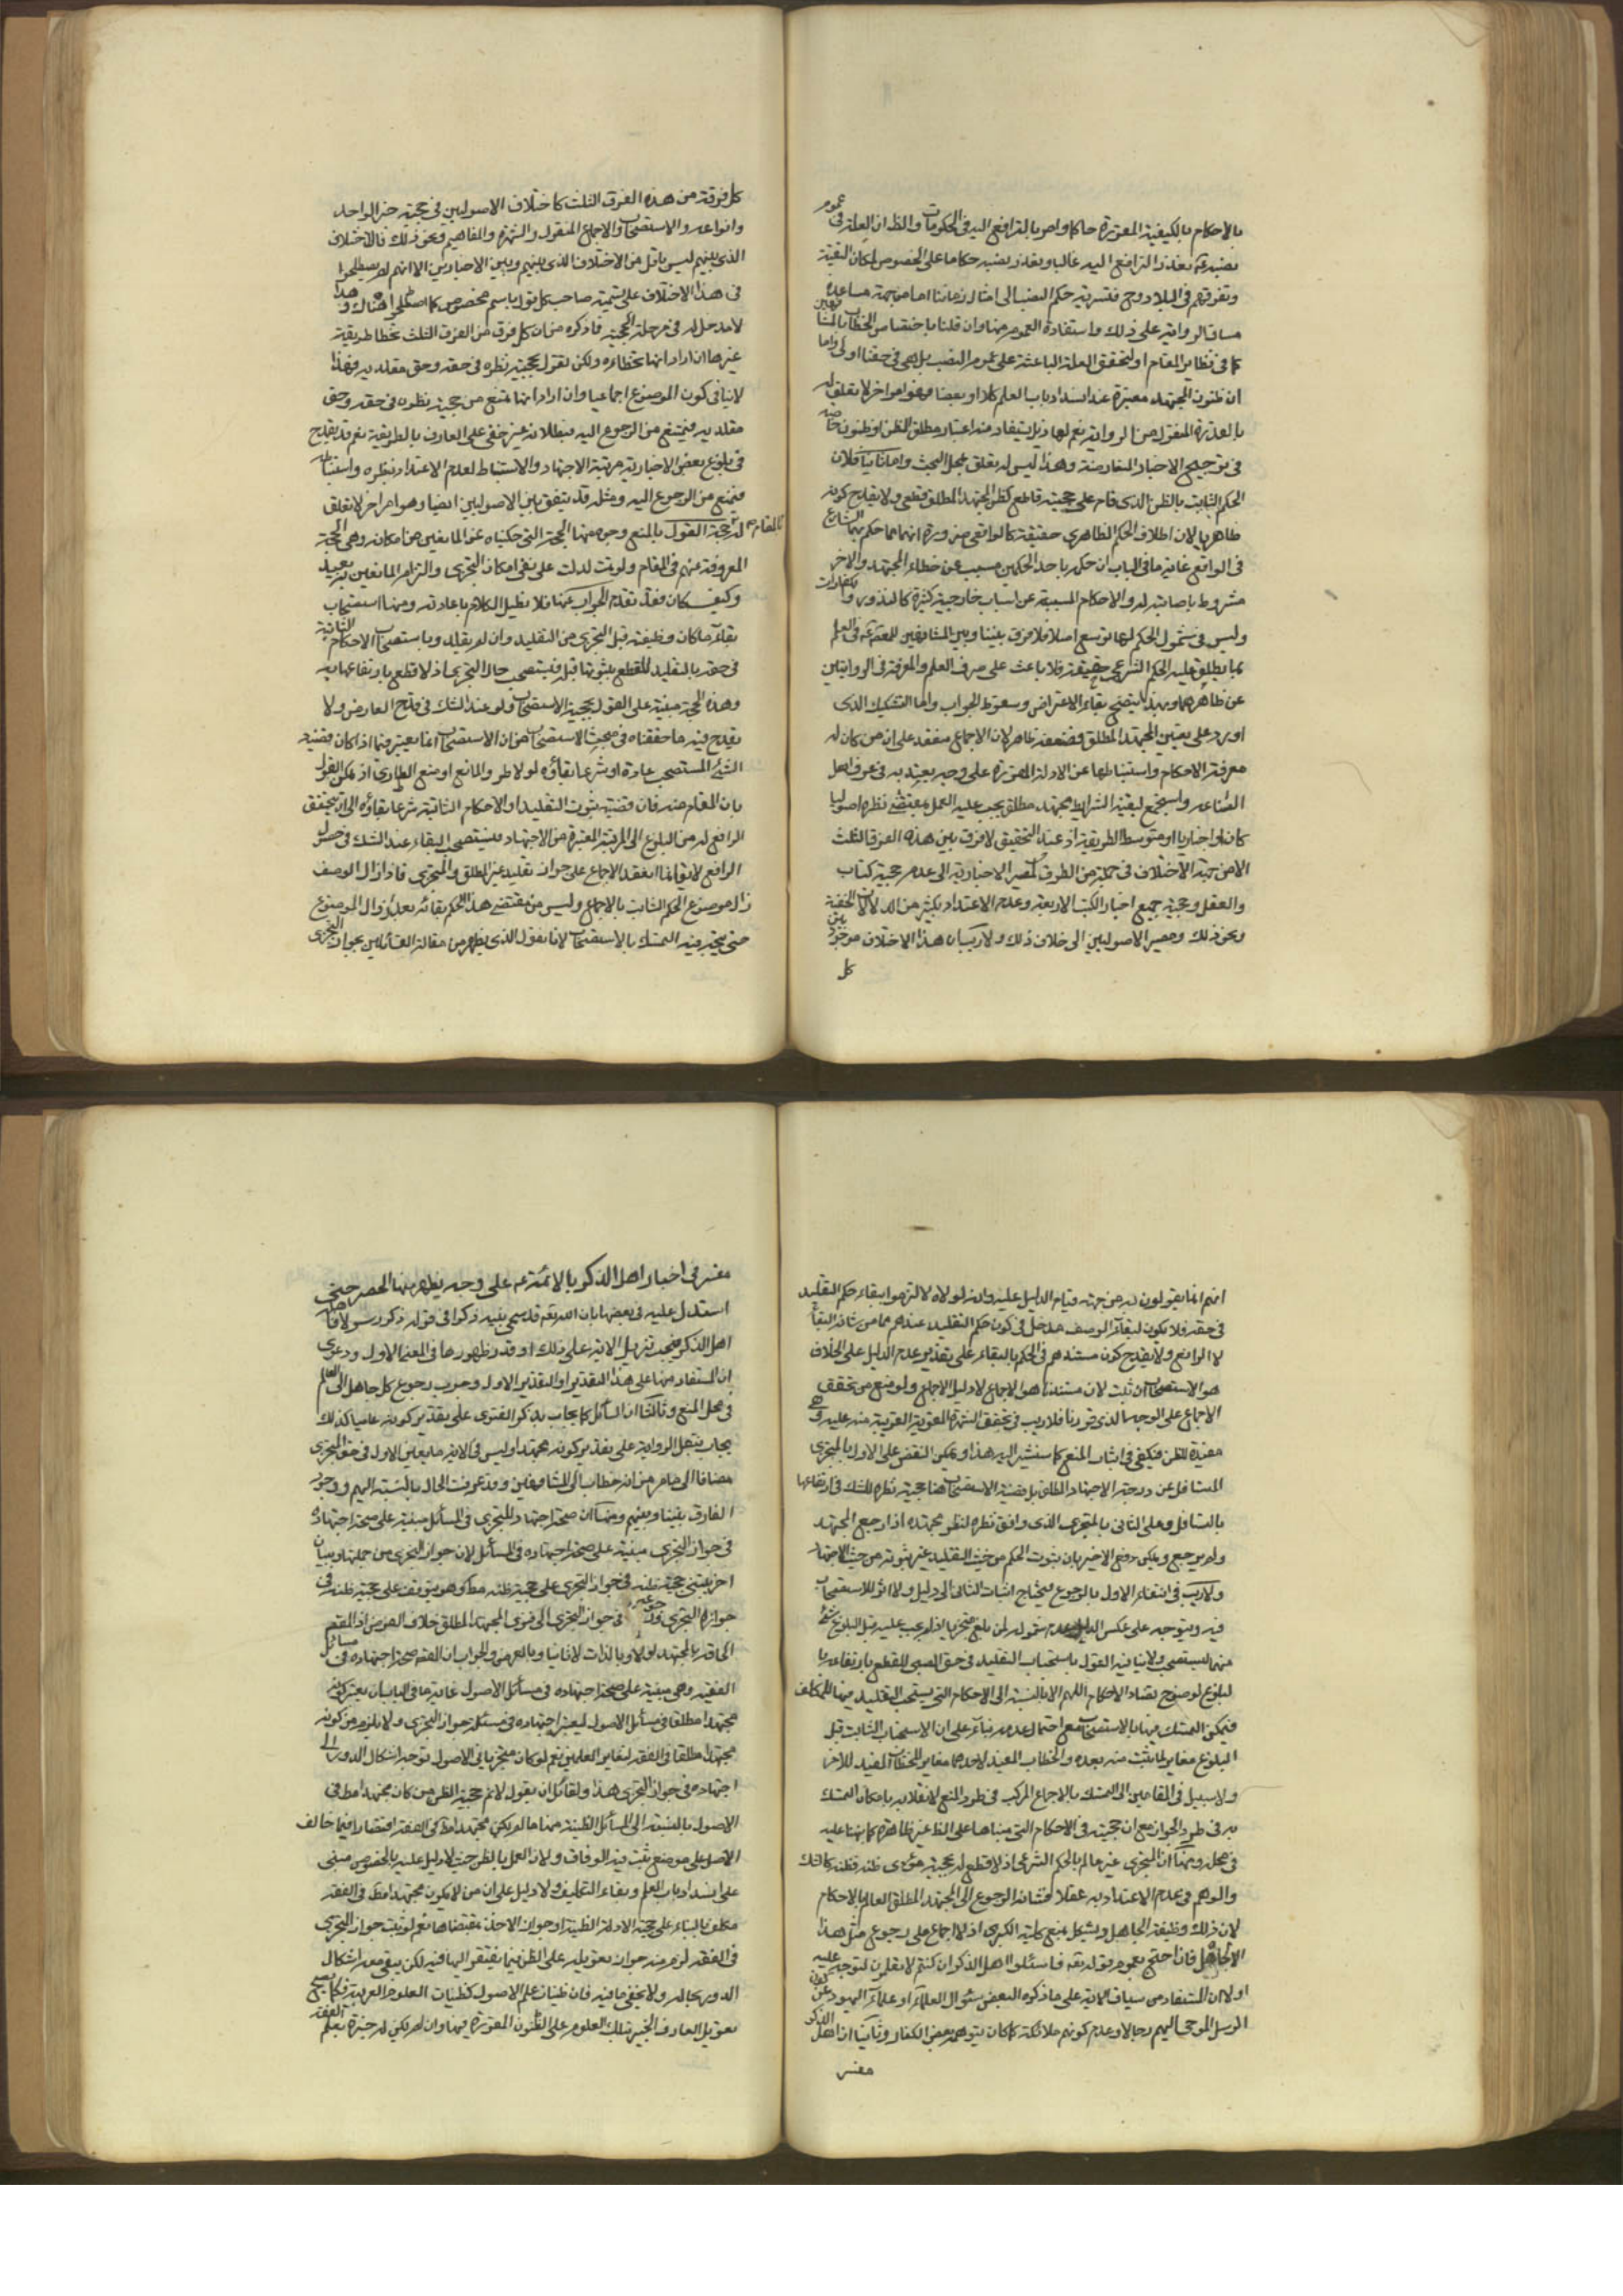 بالاحكام بالكيفية المعتبرة حاكما وامر بالترافع اليه في الحكومات والظ ان العلة في عموم
نصبه تعذر الترافع اليه غالبا وتعذر نصبه حكاما على الخصوص لمكان التقية
وتفرقهم في البلاد وح فتسرية حكم النصب الى امثال زماننا اما من جهة مساعدة
مساق الرواية على ذلك واستفادة العموم منها وان قلنا باختصاص الخطاب بالمشافهين
كما في نظاير المقام او لتحقق العلة الباعثة على عموم النصب بل هي في حقنا اولى واما
ان ظنون المجتهد معتبرة عند انسداد باب العلم كلا او بعضا فهو امر اخر لا تعلق له
بالعذرة المنقول من الرواية نعم لها ذيل يستفاد منه اعتبار مطلق الظن او ظنون خاصة
في ترجيح الاخبار المتعارضة وهذا ليس له تعلق بمحل البحث واما ثانيا فلان
الحكم الثابت بالظن الذي قام على حجيته قاطع كظن المجتهد المطلق قطعي ولا يقدح كونه
ظاهريا لان اطلاق الحكم الظاهري حقيقة كالواقعي ضرورة انهما مما حكم بهما الشارع
في الواقع غاية ما في الباب ان حكمه باحد الحكمين مسبب عن خطاء المجتهد والاخر
مشروط باصابته له والاحكام المسببة عن اسباب خارجية كثيرة كالنذور والكفارات
وليس في شمول الحكم لهما توسع اصلا فلا فرق بيننا وبين المشافهين للمعصوم في العلم
بما يطلق عليه الحكم الشرعي حقيقة فلا باعث على صرف العلم والمعرفة في الروايتين
عن ظاهرهما وبهذا يتضح بقاء الاعتراض وسقوط الجواب واما التشكيك الذي
اورد على تعيين المجتهد المطلق فضعفه ظاهر لان الاجماع منعقد على ان من كان له
معرفة الاحكام واستنباطها عن الادلة المقررة على وجه يعتد به في عرف اهل
الصناعة واستجمع لبقية الشرايط مجتهد مطلق يجب عليه العمل بمقتضى نظره اصوليا
كان او اخباريا او متوسط الطريقة اذ عند التحقيق لا فرق بين هذه الفرق الثلث
الا من جهة الاختلاف في جملة من الطرق كمصير الاخبارية الى عدم حجية كتاب
والعقل وحجية جميع اخبار الكتب الاربعة وعدم الاعتداد بكثير من الدلالات الخفية
ونحو ذلك ومصير الاصوليين الى خلاف ذلك ولا ريب ان هذا الاختلاف موجود بين
كل
كل فرقة من هذه الفرق الثلث كاختلاف الاصوليين في حجية خبر الواحد
وانواعه والاستصحاب والاجماع المنقول والشهرة والمفاهيم ونحو ذلك فالاختلاف
الذي بينهم ليس باقل من الاختلاف الذي بينهم وبين الاخباريين الا انهم لم يصطلحوا
في هذا الاختلاف على تسمية صاحب كل قول باسم مخصوص كما اصطلحوا هناك وهذا
لا مدخل له في مرحلة الحجية فما ذكره من ان كل فرق من الفرق الثلث تخطا طريقة
غيرها ان اراد انها تخطاءه ولكن تقول بحجية نظره في حقه وحق مقلديه فهذا
لا ينافي كون الموضوع اجماعيا وان اراد انها تمنع من حجية نظره في حقه وحق
مقلديه فيمتنع من الرجوع اليه فبطلانه غير خفي على العارف بالطريقة نعم قد يقدح
في بلوغ بعض الاخبارية مرتبة الاجتهاد والاستنباط لعدم الاعتداد بنظره واستنباطه
فيمنع من الرجوع اليه ومثله قد يتفق بين الاصوليين ايضا وهو امر اخر لا تعلق
له بالمقام حجة القول بالمنع وجوه منها الحجة التي حكيناه عن المانعين من امكانه وهي الحجة
المعروفة عنهم في المقام ولو تمت لدلت على نفي امكان التجزي والتزام المانعين به بعيد
وكيف كان فقد تقدم الجواب عنها فلا نطيل الكلام باعادته ومنها استصحاب
بقاء ما كان وظيفته قبل التجزي من التقليد وان لم يقلد وباستصحاب الاحكام الثابتة
في حقه بالتقليد للقطع بثبوتها قبله فيستصحب حال التجزي اذ لا قطع بارتفاعها به
وهذه الحجة مبنية على القول بحجية الاستصحاب ولو عند الشك في قدح العارض ولا
يقدح فيه ما حققناه في مبحث الاستصحاب من ان الاستصحاب انما يعتبر فيما اذا كان قضية
الشئ المستصحب عادة او شرعا بقاؤه لولا طرو المانع او منع الطاري اذ يمكن القول
بان المقام منه فان قضية ثبوت التقليد او الاحكام الثابتة شرعا بقاؤه الى ان يتحقق
الرافع له من البلوغ الى المرتبة المعتبرة من الاجتهاد فيستصحب البقاء عند الشك في حصول
الرافع لا يقال انما انعقد الاجماع على جواز تقليد غير المطلق والمتجزي فاذا زال الوصف
زال موضوع الحكم الثابت بالاجماع وليس من مقتضى هذا الحكم بقائه بعد زوال الموضوع
حتى يتجه فيه التمسك بالاستصحاب لانا نقول الذي يظهر من مقالة القائلين بجواز التجزي
انهم انما يقولون به من جهة قيام الدليل عليه وانه لولاه لالتزموا ببقاء حكم التقليد
في حقه فلا يكون لبقاء الوصف مدخل في كون حكم التقليد عندهم مما من شانه البقاء
لا الرافع ولا يقدح كون مستندهم في الحكم بالبقاء على تقدير عدم الدليل على الخلاف
هو الاستصحاب ان ثبت لان مستندنا هو الاجماع لا دليل الاجماع ولو منع من تحقق
الاجماع على الوجه الذي قررنا فلا ريب في تحقق الشهرة القوية القريبة منه عليه وهي
مفيدة للظن فيكفي في اثبات المنع كما سنشير اليه هذا ويمكن النقض على الاول بالمتجزي
المتسافل عن درجة الاجتهاد المطلق بل قضية الاستصحاب هنا حجية نظره للشك في ارتفاعها
بالتسافل وعلى الثاني بالمتجزي الذي وافق نظره لنظر مجتهده اذا رجع المجتهد
ولم يرجع ويمكن دفع الاخير بان ثبوت الحكم من حيث التقليد غير ثبوته من حيث الاجتهاد
ولا ريب في انتفاء الاول بالرجوع فيحتاج اثبات الثاني الى دليل ولا اثر للاستصحاب
فيه ويتوجه على عكس الدليل عدم شموله لمن بلغ متجزيا اذ لم يجب عليه قبل البلوغ شئ
منهما ليستصحب ولا ينافيه القول باستحباب التقليد في حق الصبي للقطع بارتفاعه با
لبلوغ لوضوح تضاد الاحكام اللهم الا بالنسبة الى الاحكام التي يستحب التقليد فيها للمكلف
فيمكن التمسك فيها بالاستصحاب مع احتمال عدمه بناء على ان الاستحباب الثابت قبل
البلوغ مغاير لما يثبت منه بعده والخطاب المفيد لاحدهما مغاير للخطاب المفيد للاخر
ولا سبيل في المقامين الى التمسك بالاجماع المركب في طرد المنع لانقلابه بامكان التمسك
به في طرد الجواز مع ان حجيته في الاحكام التي مبناها على الظ غير ظاهرة كما نبهنا عليه
في محله ومنها ان المتجزي غير عالم بالحكم الشرعي اذ لا قطع له بحجية مؤدى ظنه فظنه كالشك
والوهم في عدم الاعتداد به عقلا فشانه الرجوع الى المجتهد المطلق العالم بالاحكام
لان ذلك وظيفة الجاهل ويشكل بمنع كلية الكبرى اذ لا اجماع على رجوع مثل هذا
الجاهل فان احتج بعموم قوله تعه فاسئلوا اهل الذكر ان كنتم لا تعلمون لتوجه عليه
اولا ان المستفاد من سياق الاية على ما ذكره البعض سئوال العلماء او علماء اليهود عن كون
الرسل الموحى اليهم رجالا وعدم كونهم ملائكة كما كان يتوهمه بعض الكفار وثانيا ان اهل الذكر
مفسر
مفسر في اخبار اهل الذكر بالائمة ع على وجه يظهر منها الحصر حتى
استدل عليه في بعضها بان الله تعه قد سمى نبيه ذكرا في قوله ذكرا رسولا فاهله
اهل الذكر فيجب تنزيل الاية على ذلك او قدر ظهورها في المعنى الاول ودعوى
ان المستفاد منها على هذا التقدير او التقدير الاول وجوب رجوع كل جاهل الى العالم
في محل المنع وثالثا ان السائل كما يجاب بذكر الفتوى على تقدير كونه عاميا كذلك
يجاب بنقل الرواية على تقدير كونه مجتهدا وليس في الاية ما يعين الاول في حق المتجزي
مضافا الى ما مر من انه خطاب الى المشافهين وقد عرفت الحال بالنسبة اليهم ووجود
الفارق بيننا وبينهم ومنها ان صحة اجتهاد المتجزي في المسائل مبنية على صحة اجتهاده
في جواز التجزي مبنية على صحة اجتهاده في المسائل لان جواز التجزي من جملتها وببيان
اخر يبتني حجية ظنه في جواز التجزي على حجية ظنه مط وهو يتوقف على حجية ظنه في
جوازه التجزي ورجوعه في جواز التجزي الى فتوى المجتهد المطلق خلاف الفرض اذ المقصود
الحاقه بالمجتهد اولا وبالذات لا ثانيا وبالعرض والجواب ان الفقه صحة اجتهاده في مسائل
الفقيه وهي مبنية على صحة اجتهاده في مسائل الاصول غاية ما في الباب ان يعتبر كونه
مجتهدا مطلقا في مسائل الاصول ليعتبر اجتهاده في مسئلة جواز التجزي ولا يلزم من كونه
مجتهدا مطلقا في الفقه لتغاير العلمين نعم لو كان متجزيا في الاصول توجه اشكال الدور الى
اجتهاده في جواز التجزي هذا ولقائل ان يقول لا نم حجية الظن من كان مجتهدا مط في
الاصول بالنسبة الى المسائل الظنية منها ما لم يكن مجتهدا مط في الفقه اقتصارا فيما خالف
الاصل على موضع ثبت فيه الوفاق ولان العمل بالظن حيث لا دليل عليه بالخصوص مبني
على انسداد باب العلم وبقاء التكليف ولا دليل على ان من لا يكون مجتهدا مط في الفقه
مكلف بالبناء على حجية الادلة الظنية او جواز الاخذ بمقتضاها نعم لو ثبت جواز التجزي
في الفقه لزم منه جواز تعويله على الظن فيما يفتقر اليها فيه لكن يبقى معه اشكال
الدور بحاله ولا يخفى ما فيه فان ظنيات علم الاصول كظنيات العلوم العربية فكما يصح
تعويل العارف الخبير بتلك العلوم على الظنون المقررة فيها وان لم يكن له خبرة بعلم الفقه